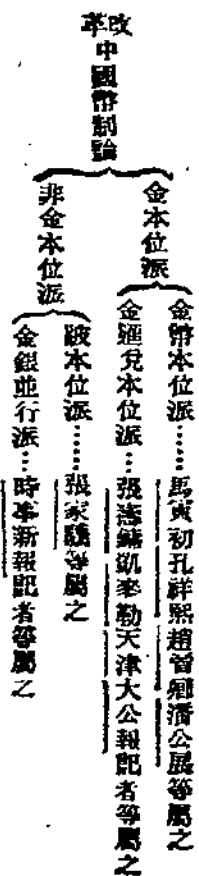 改革中國幣制論
金本位派
金幣本位派……馬寅初孔祥熙趙晉卿潘公展等屬之
金匯兌本位派…張 凱麥勒天津大公報記者等屬之
非金本位派
本位派……張家驤等屬之
金銀並行派…時事新報記者等屬之